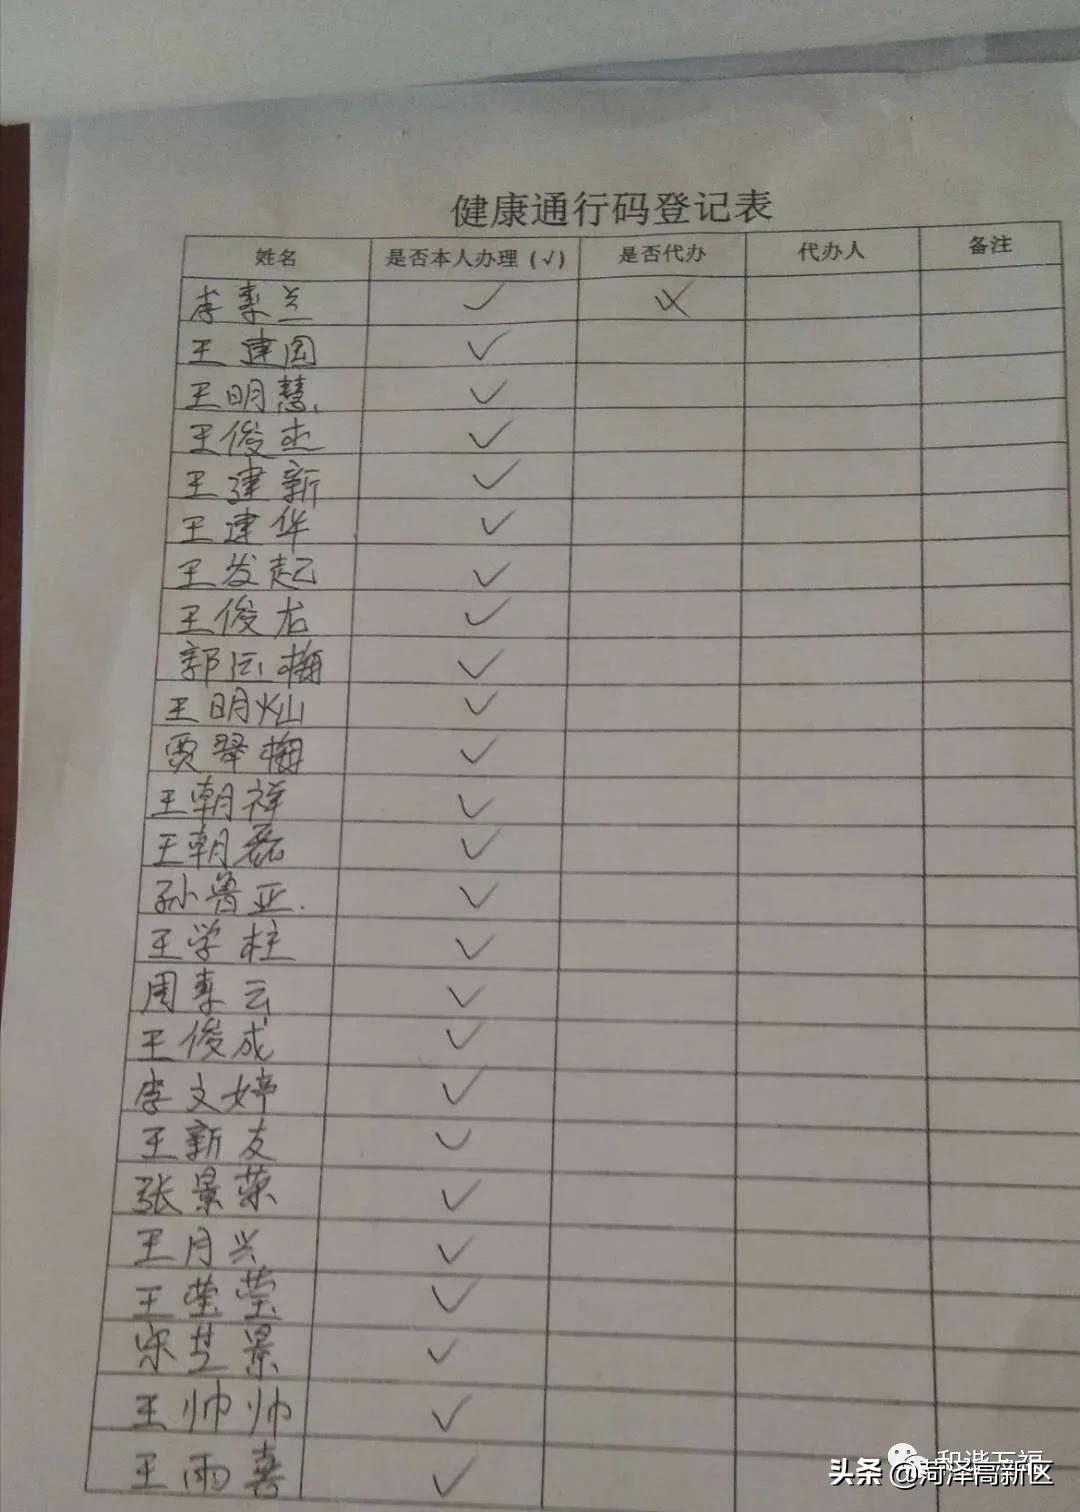 健康通行码登记表
姓名 是否本人办理(√) 是否代办 代办人 备注
李素兰 ✓ ✓
王建国 ✓
王明慧 ✓
王俊杰 ✓
王建新 ✓
王建华 ✓
王发起 ✓
王俊龙 ✓
郭云梅 ✓
王明灿 ✓
贾翠梅 ✓
王朝祥 ✓
王朝磊 ✓
孙鲁亚. ✓
王学柱 ✓
周素云 ✓
王俊成 ✓
李文婷 ✓
王新友 ✓
张景荣 ✓
王月兴 ✓
王莹莹 ✓
宋芝景 ✓
王帅帅 ✓
王雨喜 ✓
和谐五福
头条 @菏泽高新区